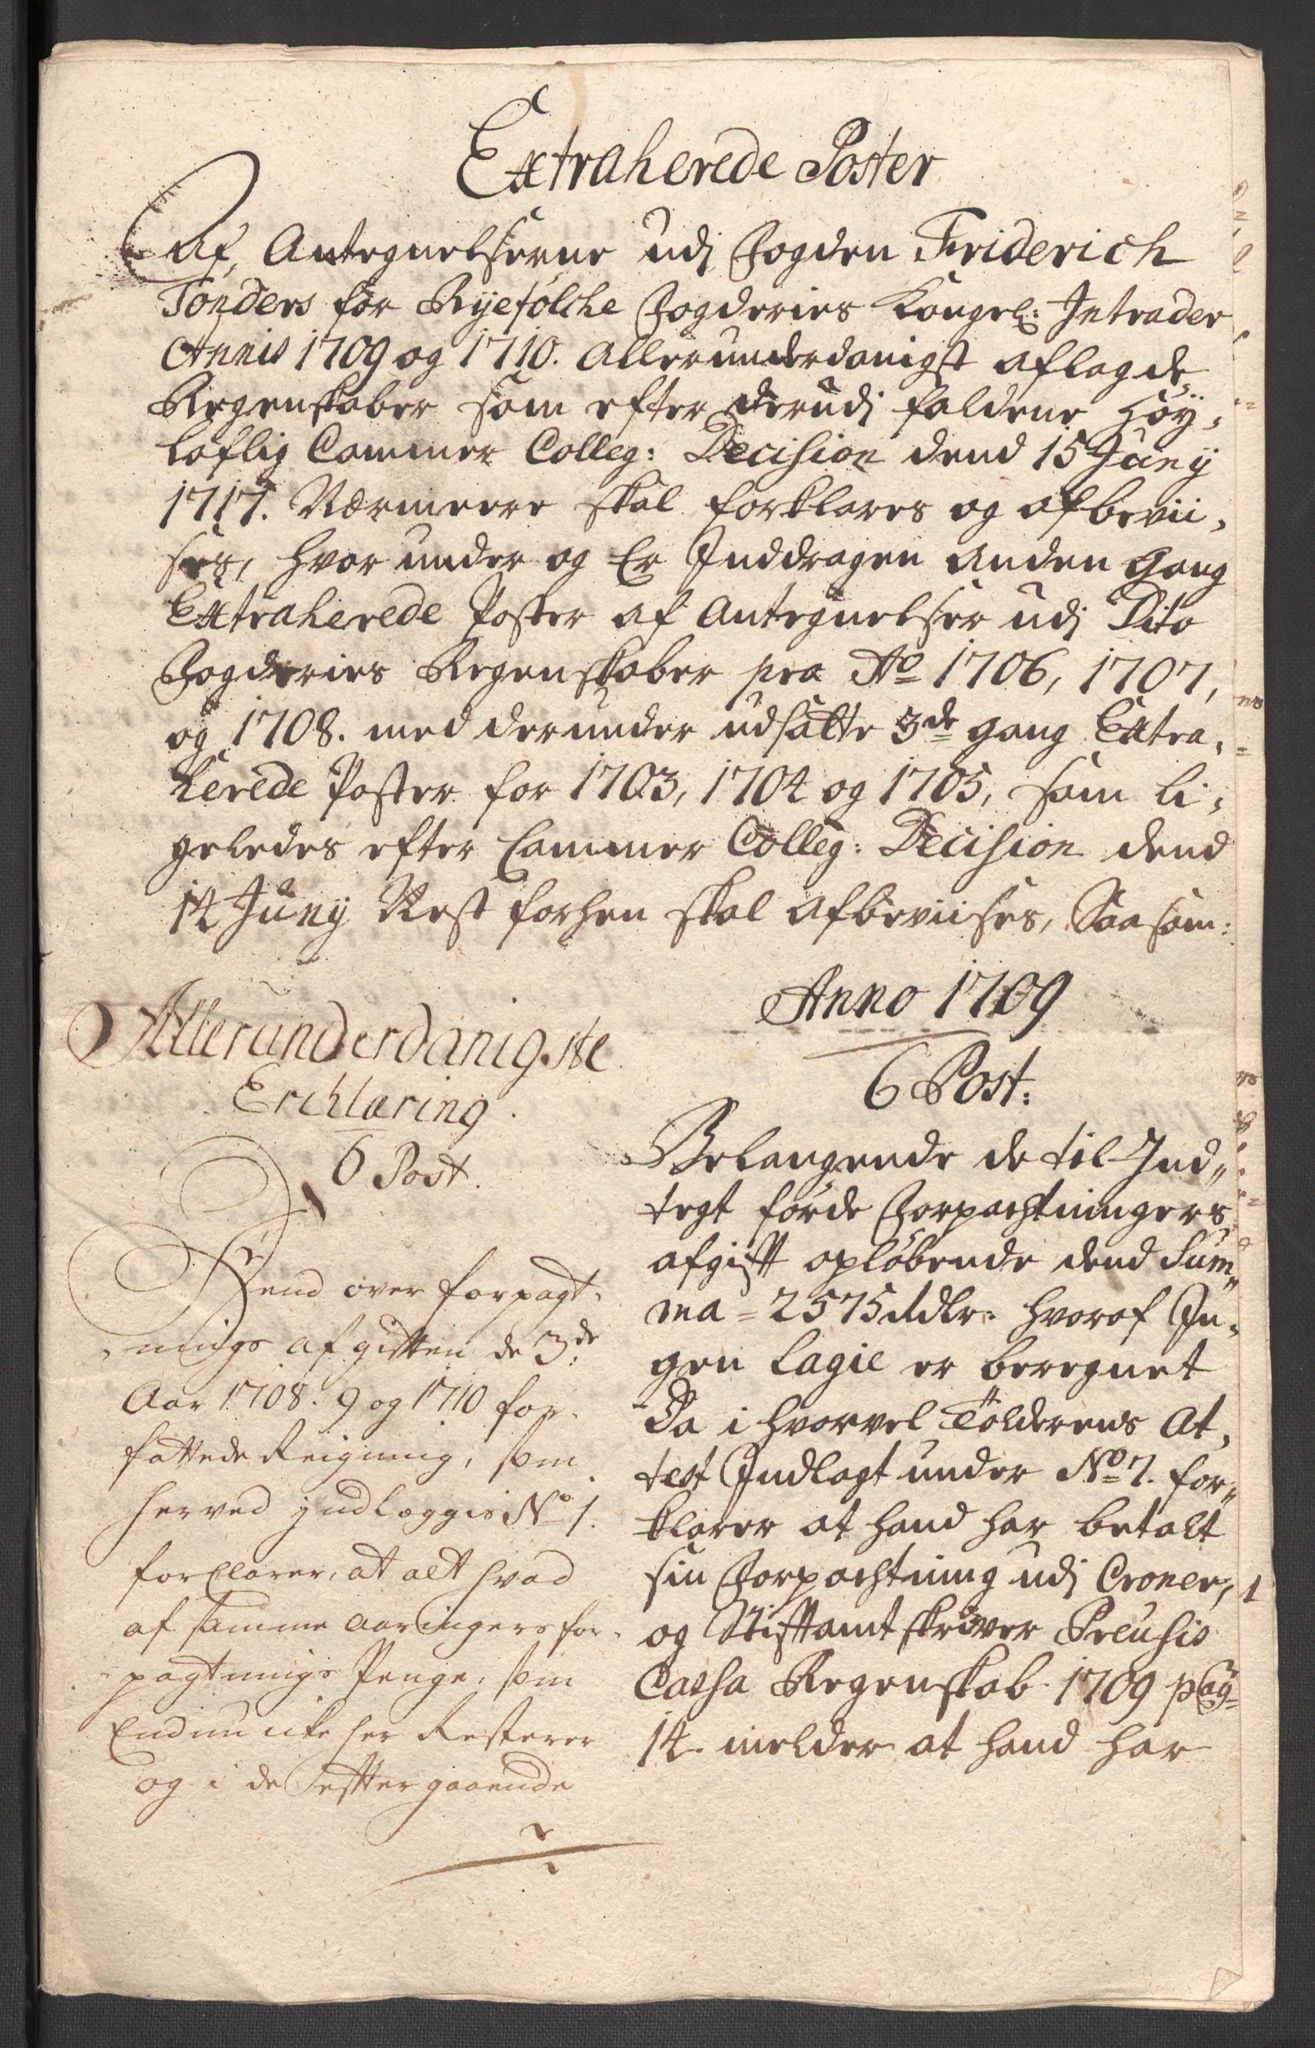 Extraherede Poster
Af Antegnelserne udj Fogden Friderich
Tonders for Ryefølche Fogderies Kongel: Intrader
Annis 1709 og 1710. allerunderdanigst aflagde
Regenskaber som efter derudj faldene Høy,
loflig Cammer Colleg: Decision dend 15 Juny
1717. Nærmeere skal forklares og afbevii,
ses, hvorunder og Er Inddragen anden gang
Extraherede Poster af Antegnelser udj Dito
Fogderies Regenskaber pra Ao 1706, 1707,
og 1708. med derunder udsatte 3de gang Extra,
herede Poster for 1703, 1704 og 1705, som li,
geledes efter Cammer Colleg: Decision dend
14 Juny Nest forhen skal afbeviises, Saasom:
Anno 1709
6 Post:
Belangende de til Ind,,
tegt førde Forpachtningers
afgifft opløbende dend Sum,,
ma = 2575 ddlr: hvoraf In,
gen Lagie er beregnet
Da i hvorvel Tølderens At,
test Indlagt under No 7. for,,
klarer at hand har betalt
sin Forpachtning udj Croner, 1
og Stifftamtskriver Preusis
Cassa Regenskab 1709 pag
14. melder at hand har
Allerunderdanigste
Erchlæring
6 Post.
Dend over forpagt,
nings afgifften de 3de
Aar 1708. 9 og 1710 for,
fattede Reigning, som
herved jndlæggis No 1.
forclarer, at alt hvad
af samme aaringers for,
pagtnings Penge, som
Endnu icke her Resterer
og i de efftergaaende